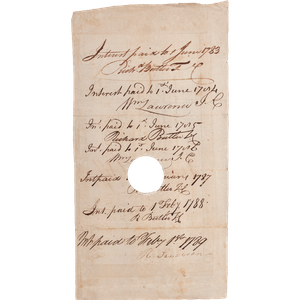 Interest paid to 1 June 1783
Richd Butler
Interest paid to 1st June 1784
Wm Lawrence J. C
Int. paid to 1st June 1785
Richard Butler
Int. paid to 1st June 1786
Wm
Int paid 1787
Butler
Int. paid to 1 Feby 1788
R Butler
Int. paid to Feby 1st 1789